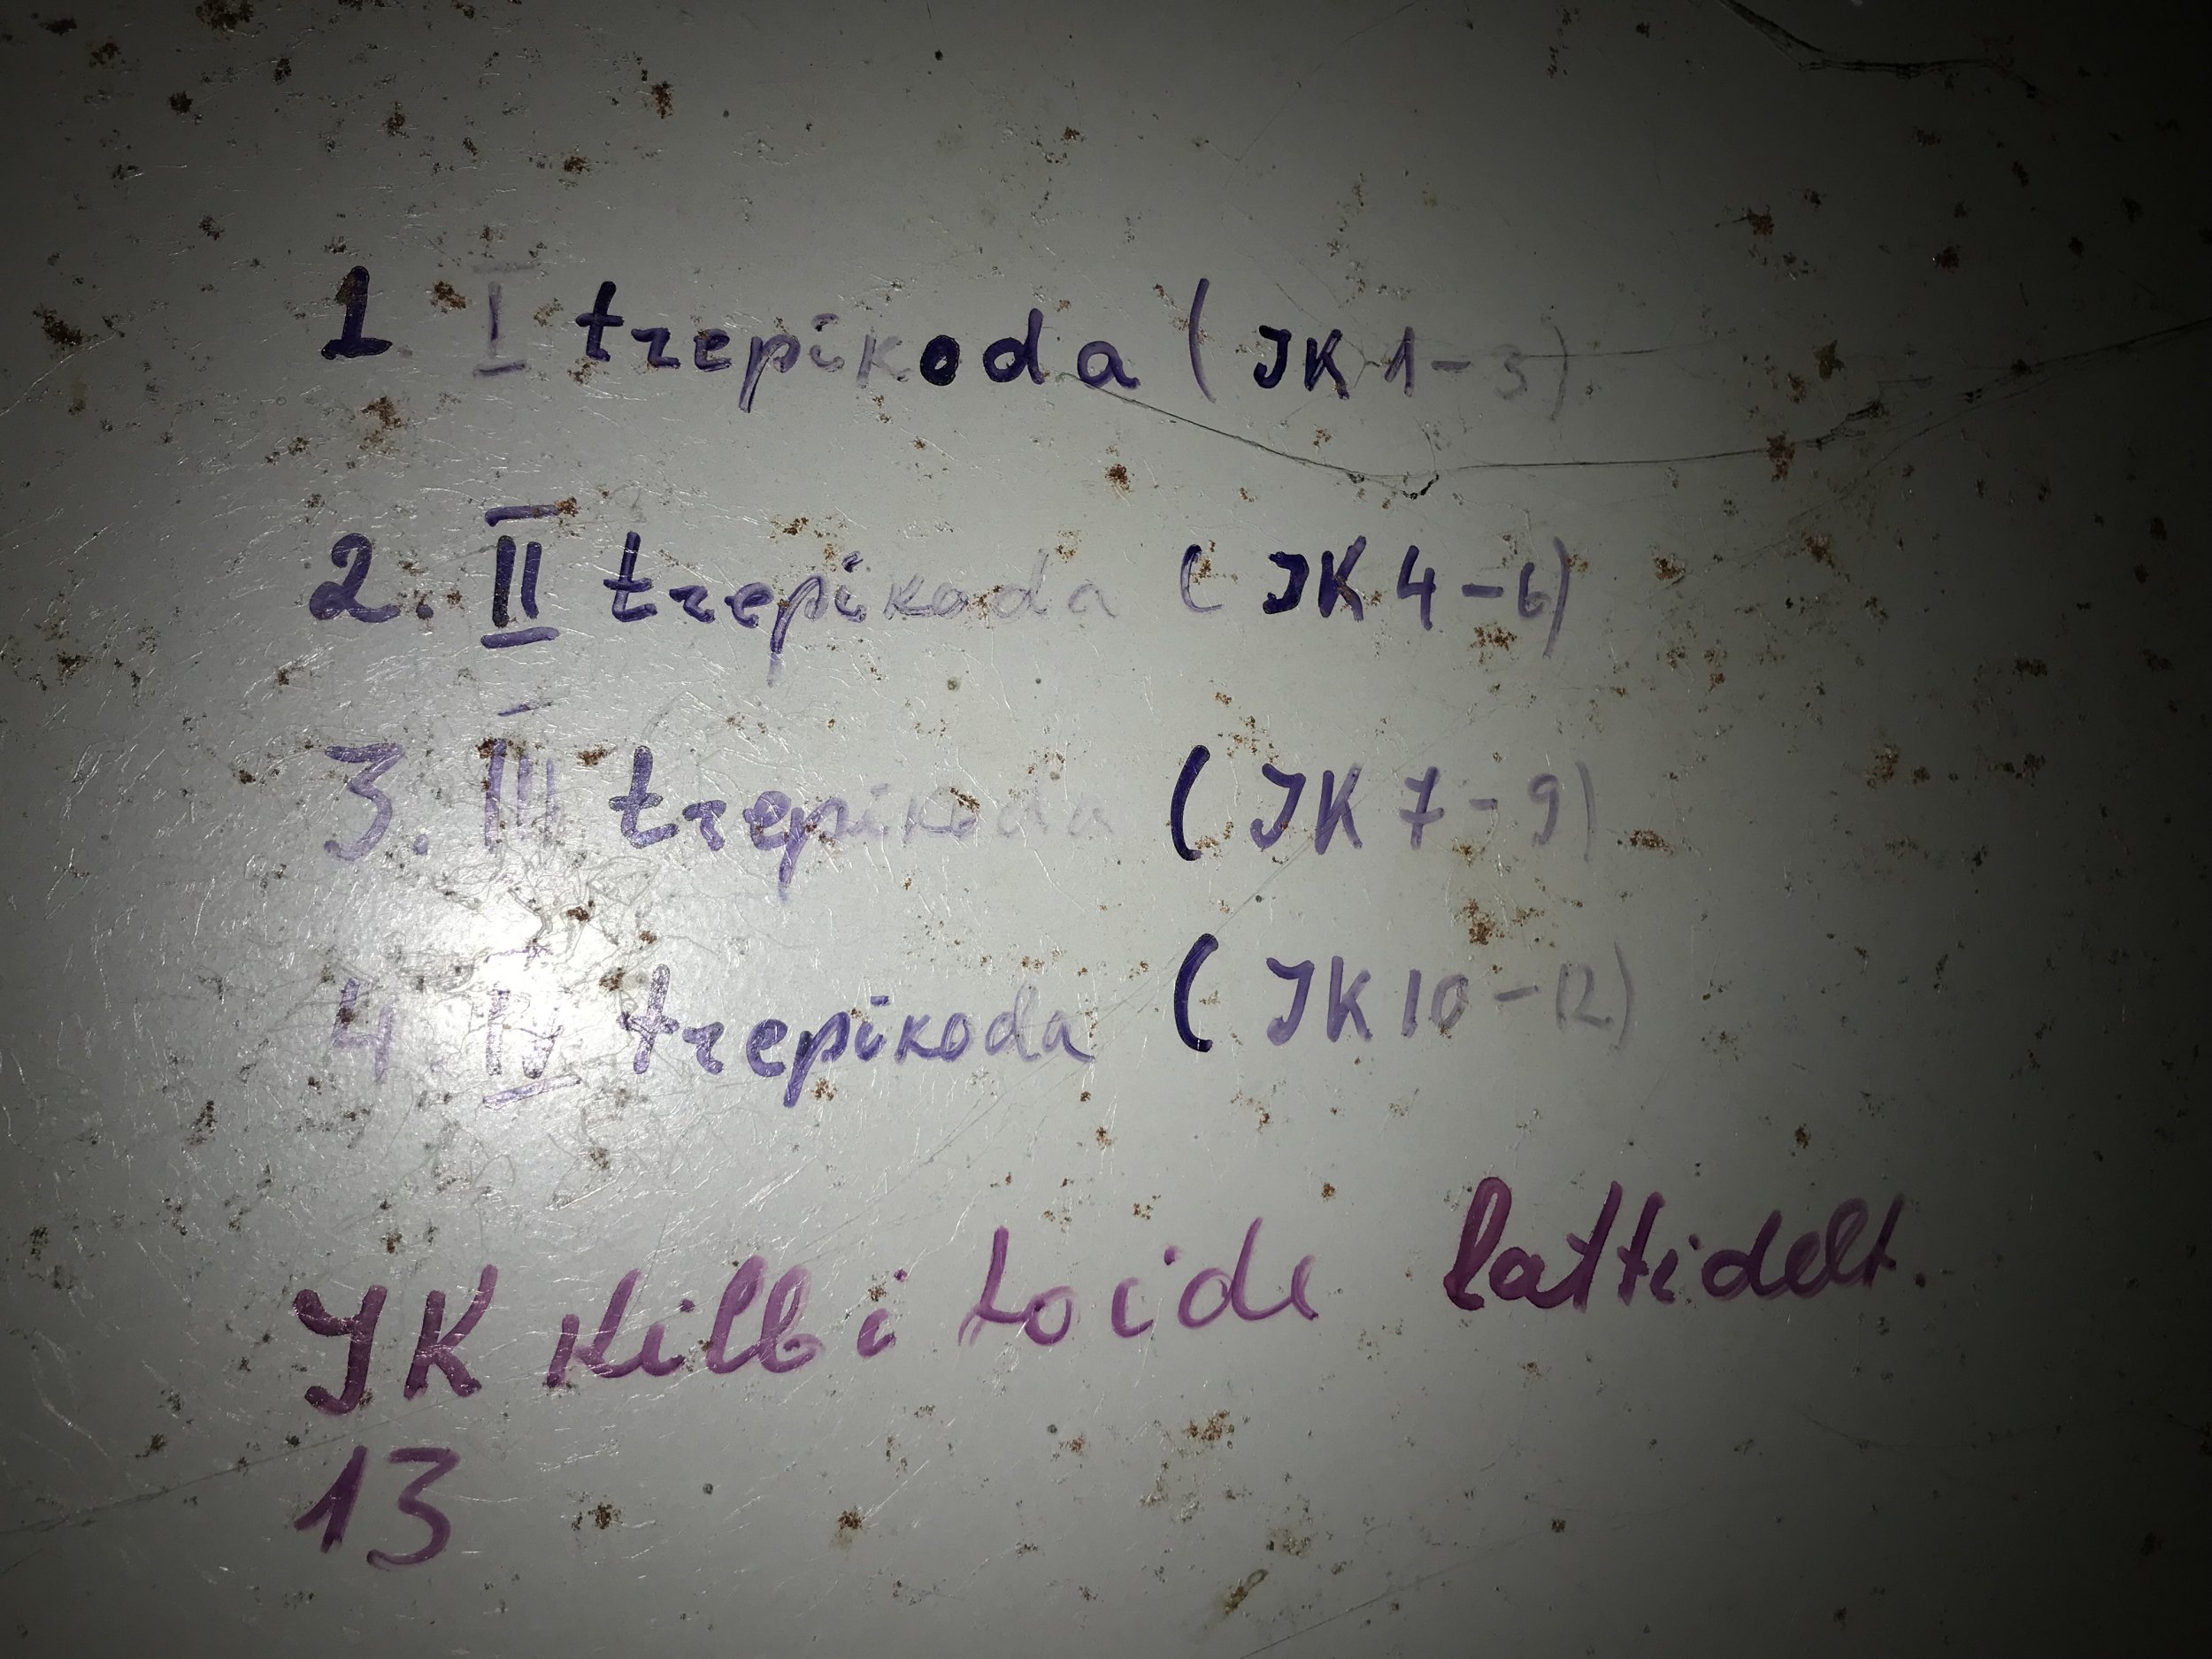 1. I trepikoda (JK 1-3)
2. II trepikoda (JK 4-6)
3. III trepikoda (JK 7-9)
4. IV trepikoda (JK 10-12)
JK kilbi toide lattidelt
13